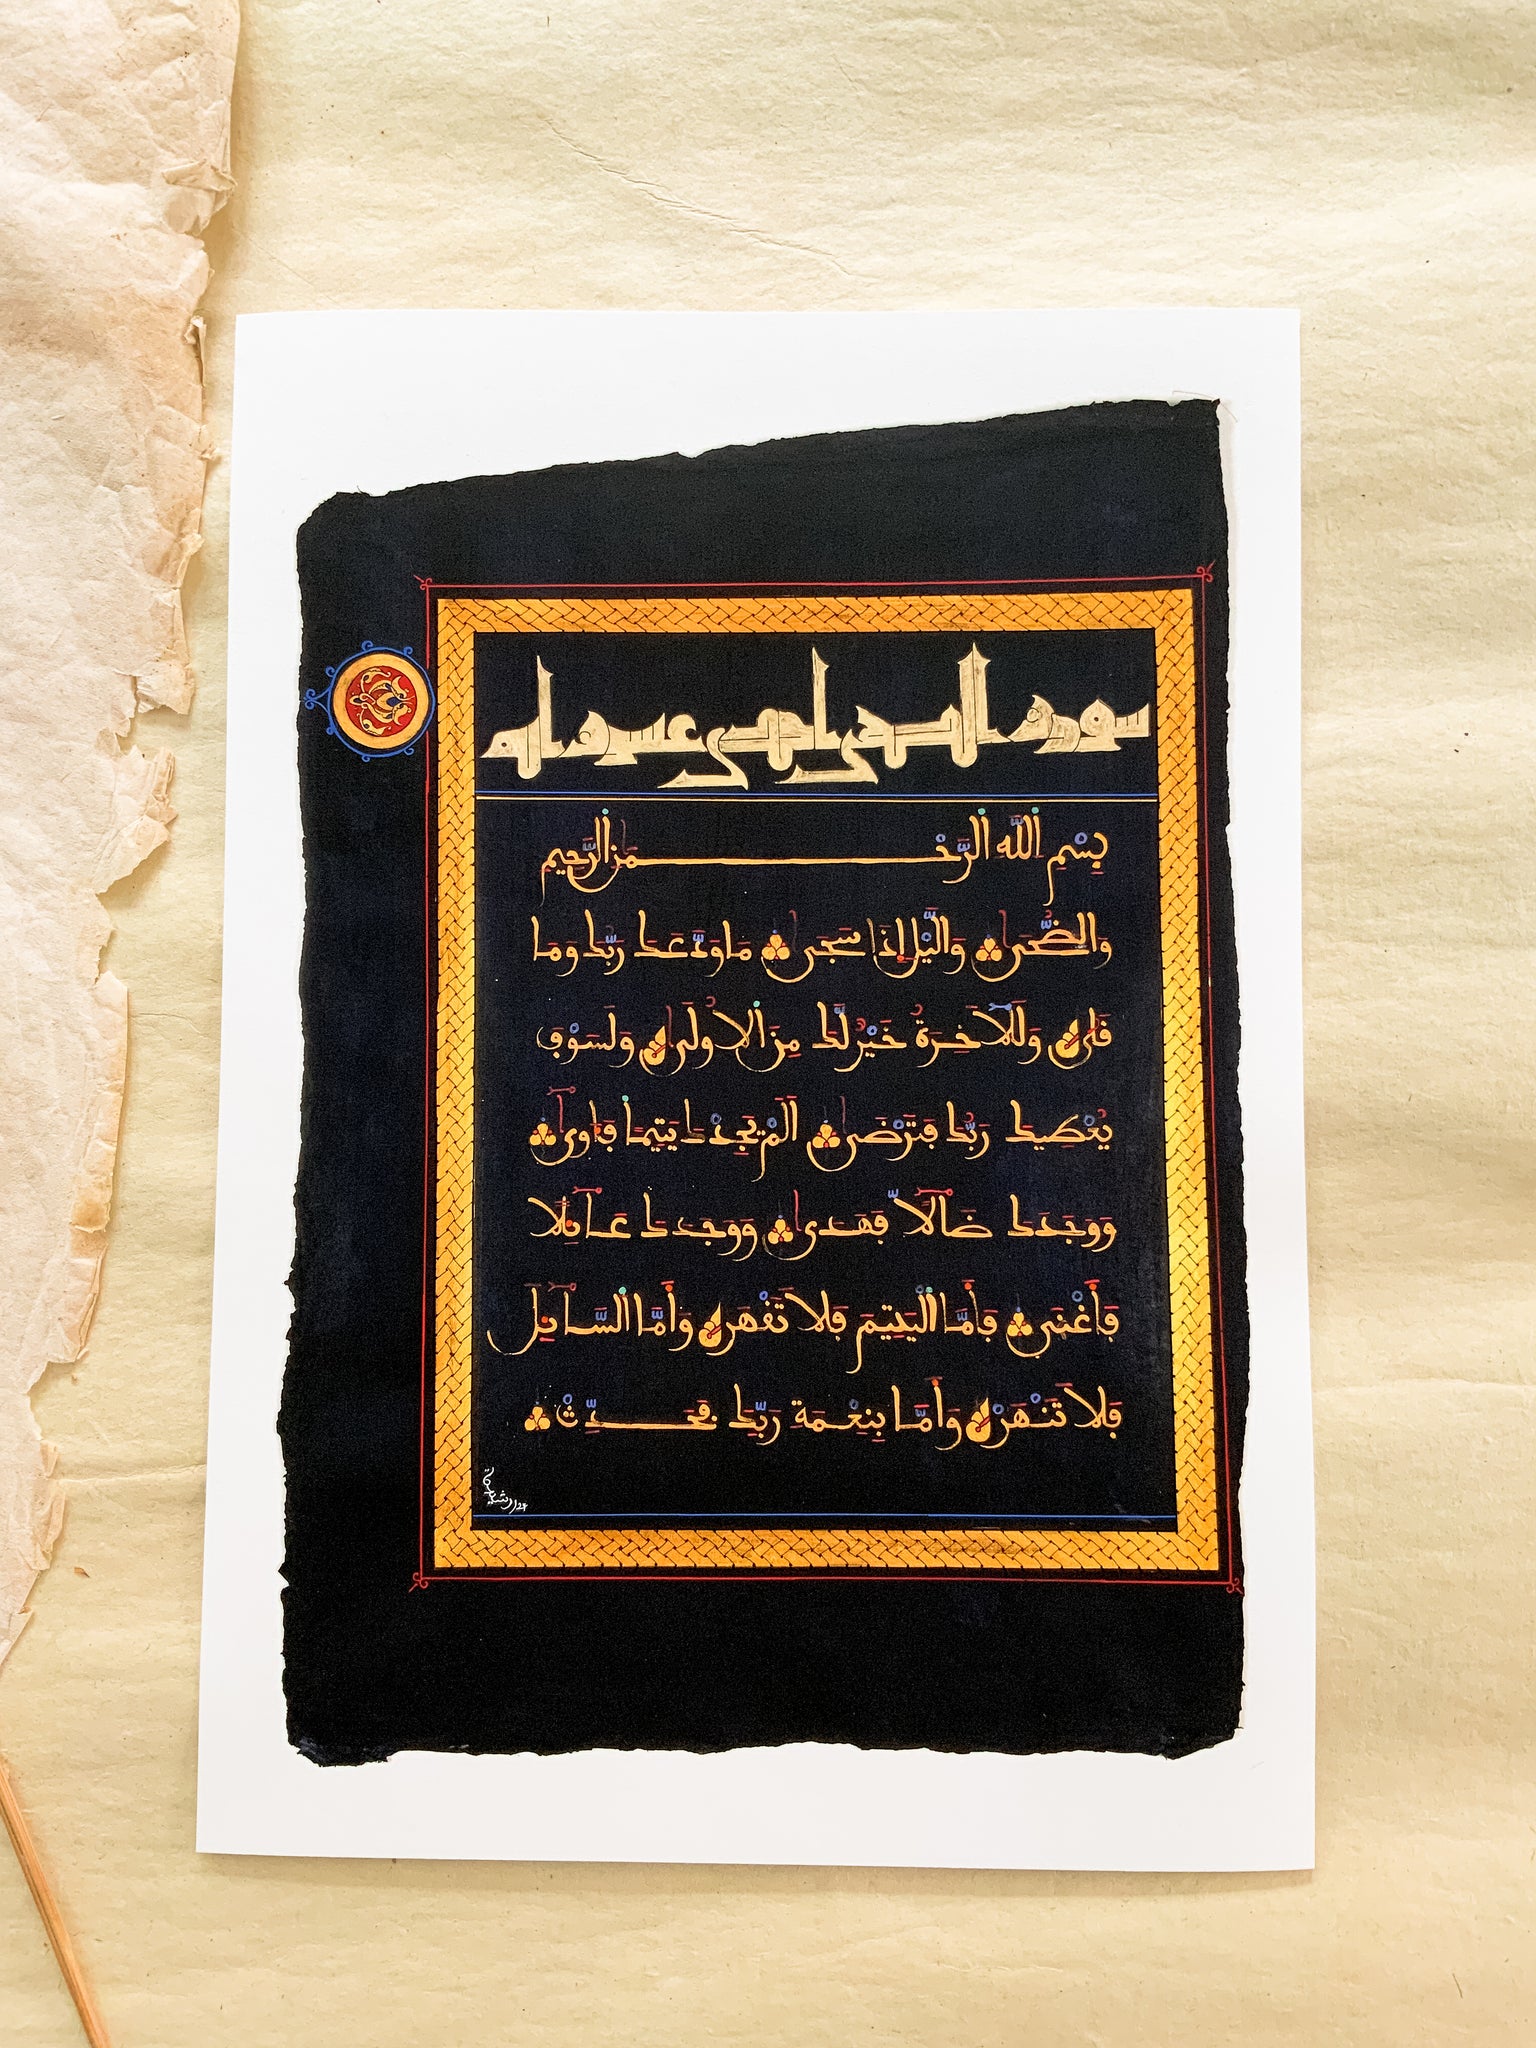 سورة الضحى إحدى عشرة آية
بِسْمِ اللَّهِ الرَّحْمَنِ الرَّحِيمِ
وَالضُّحَى وَالَّيْلِ إِذَا سَجَى مَا وَدَّعَكَ رَبُّكَ وَمَا
قَلَى وَلَلْآخِرَةُ خَيْرٌ لَّكَ مِنَ الْأُولَى وَلَسَوْفَ
يُعْطِيكَ رَبُّكَ فَتَرْضَى أَلَمْ يَجِدْكَ يَتِيمًا فَآوَى
وَوَجَدَكَ ضَآلًّا فَهَدَى وَوَجَدَكَ عَآئِلًا
فَأَغْنَى فَأَمَّا الْيَتِيمَ فَلَا تَقْهَرْ وَأَمَّا السَّآئِلَ
فَلَا تَنْهَرْ وَأَمَّا بِنِعْمَةِ رَبِّكَ فَحَدِّثْ